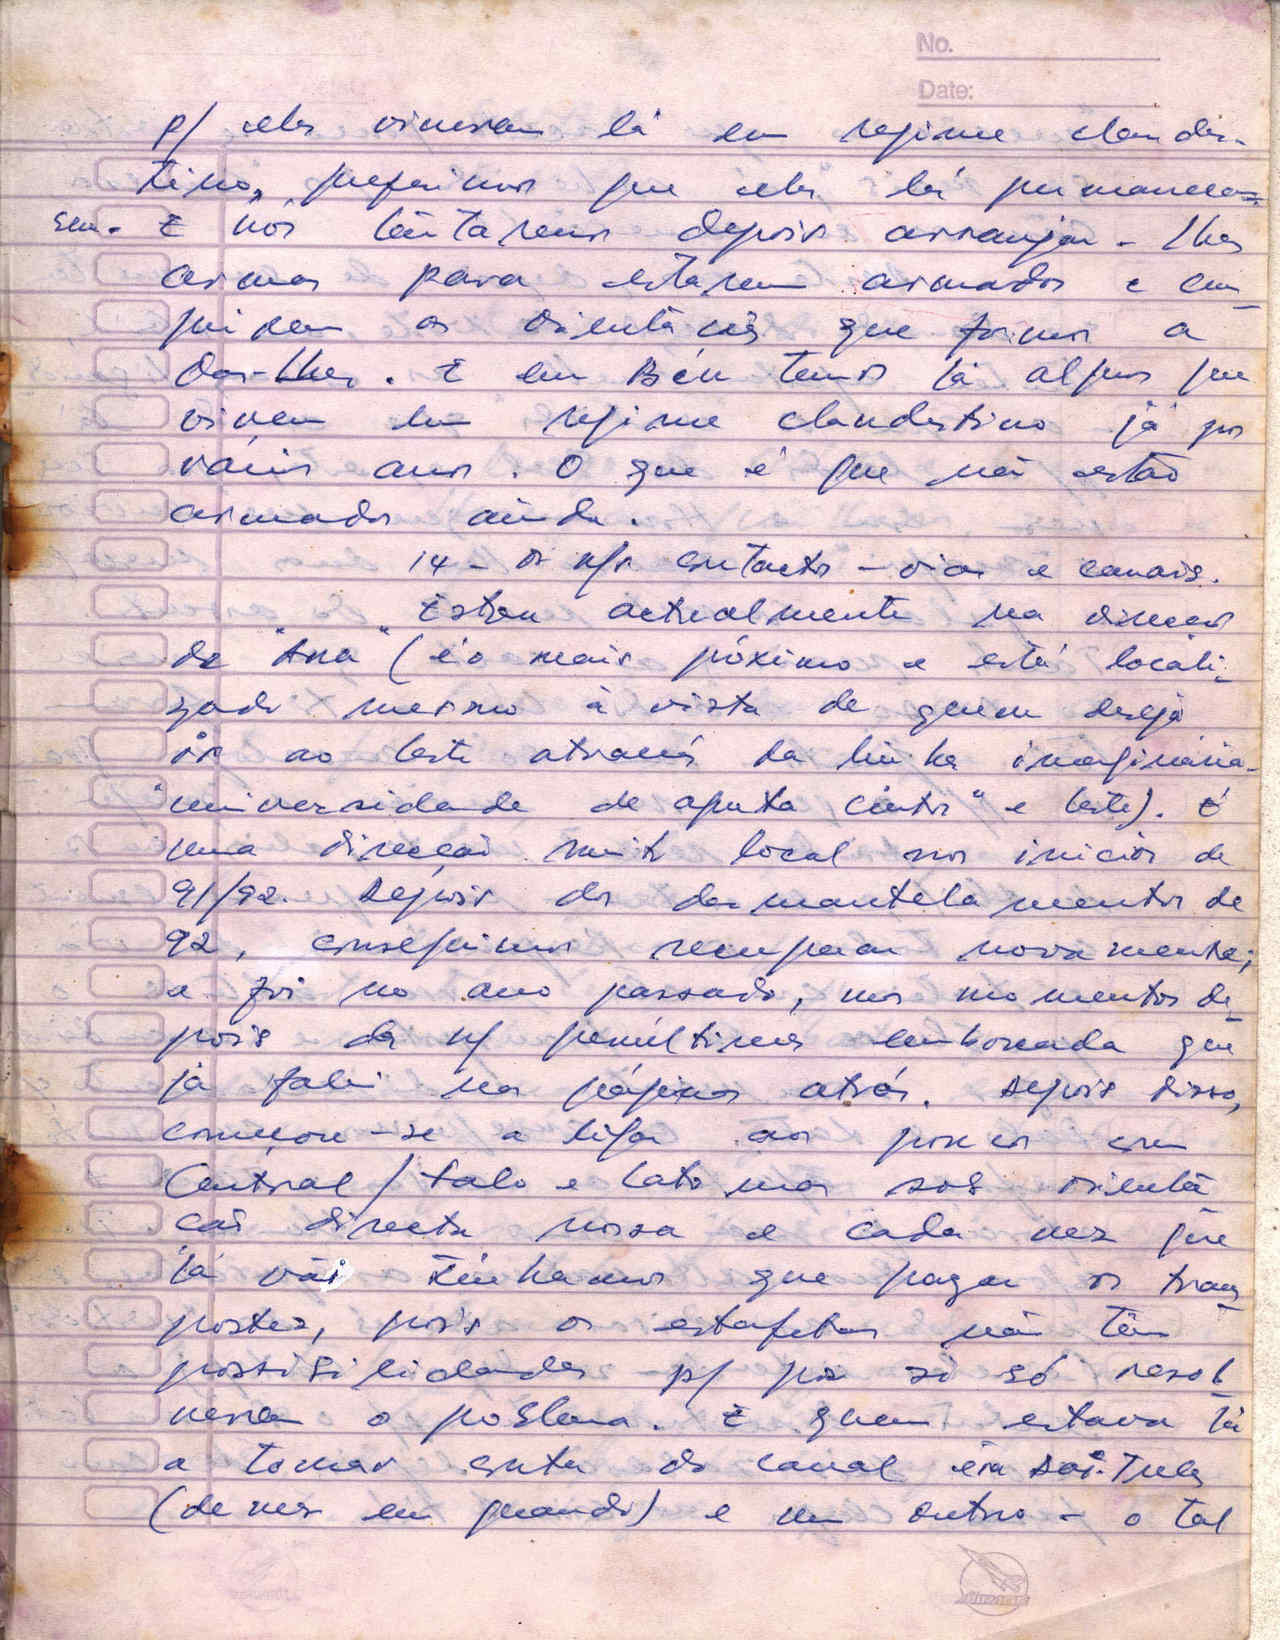 No.
Date:
p/ eles viverem lá em regime clandes-
tino, preferimos que eles lá permaneces-
sem. E nós tentaremos depois arranjar-lhes
armas para estarem armados e cum-
prirem as orientações que formos a
dar-lhes. E em Béu temos lá alguns que
vivem em regime clandestino já por
vários anos. O que é que não estão
armados ainda.
14 - Os n/s contactos - vias e canais.
Estou actualmente na direcção
de "Ana" (é o mais próximo e está locali-
zado mesmo à vista de quem deseja
ir ao leste através da linha imaginária
"universidade de aputa centro" e leste). É
uma direcção muito local nos inícios de
91/92. Depois dos desmantelamentos de
92, conseguimos recuperar novamente;
e foi no ano passado, nos momentos de-
pois da n/ penúltima emboscada que
já falei nas páginas atrás. Depois disso,
começou-se a ligar aos poucos com
Central/Falo e Lato mas sob orienta
ção directa nossa e cada vez que
lá vão tínhamos que pagar os trans-
portes, pois os estafetas não têm
possibilidades p/ por si só resol-
verem o problema. E quem estava lá
a tomar conta do canal era Doi-Tules
(de vez em quando) e um outro - o tal